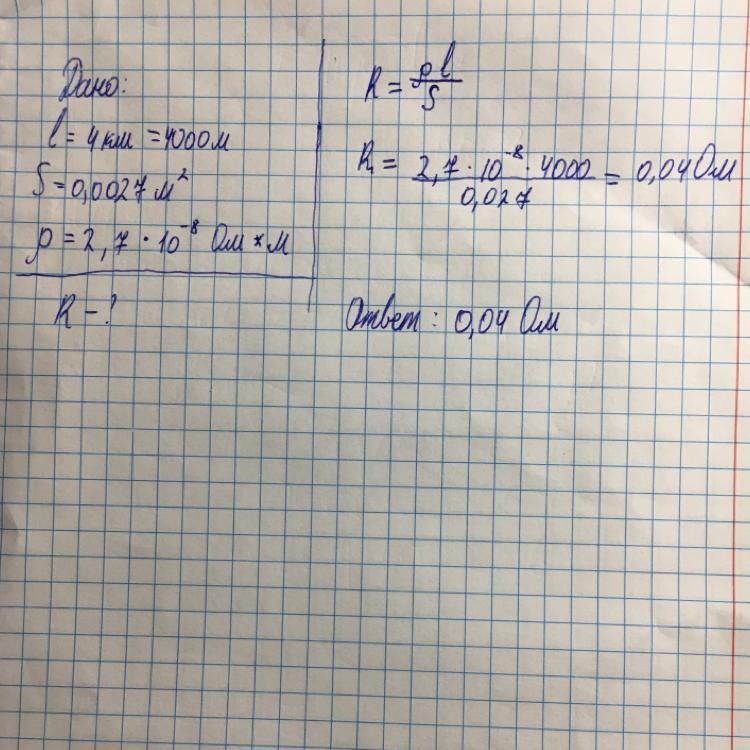 Дано:
l = 4 км = 4000 м
S = 0,0027 м²
ρ = 2,7 · 10⁻⁸ Ом * м
R - ?
R = ρl/S
R = 2,7 · 10⁻⁸ · 4000 / 0,027 = 0,04 Ом
Ответ: 0,04 Ом